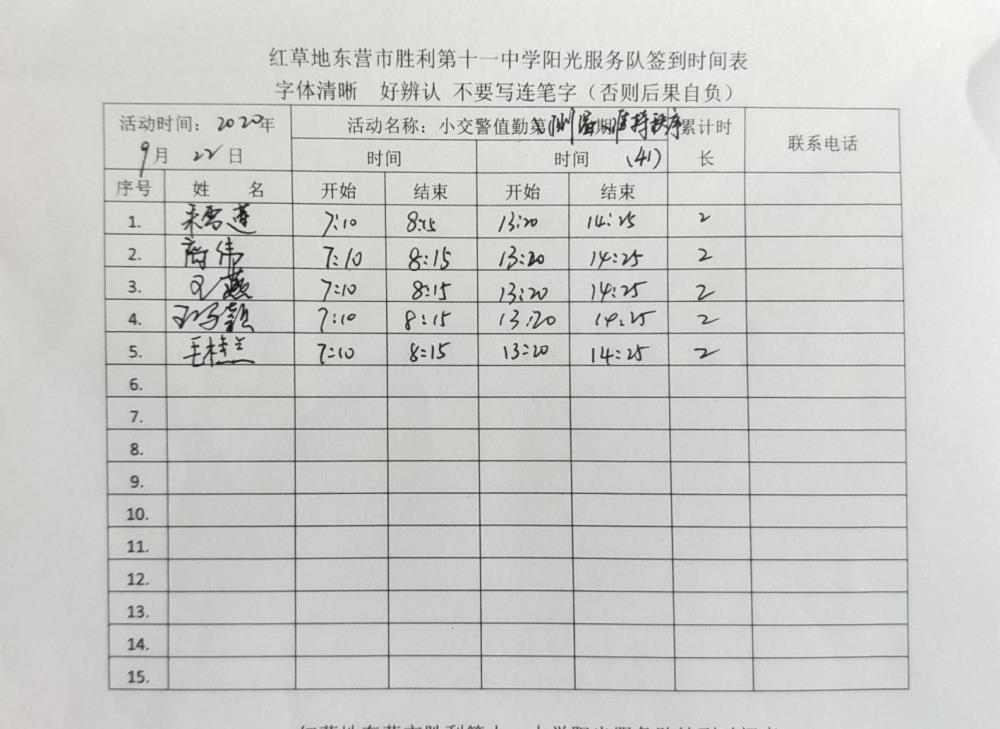 红草地东营市胜利第十一中学阳光服务队签到时间表
字体清晰 好辨认 不要写连笔字（否则后果自负）
活动时间：2020年 活动名称：小交警值勤第 测温 期 维持秩序 累计时 联系电话
9月 22日 时间 时间 (41) 长
序号 姓 名 开始 结束 开始 结束
1. 7:10 8:15 13:20 14:25 2
2. 伟 7:10 8:15 13:20 14:25 2
3. 燕 7:10 8:15 13:20 14:25 2
4. 7:10 8:15 13:20 14:25 2
5. 毛桂兰 7:10 8:15 13:20 14:25 2
6.
7.
8.
9.
10.
11.
12.
13.
14.
15.